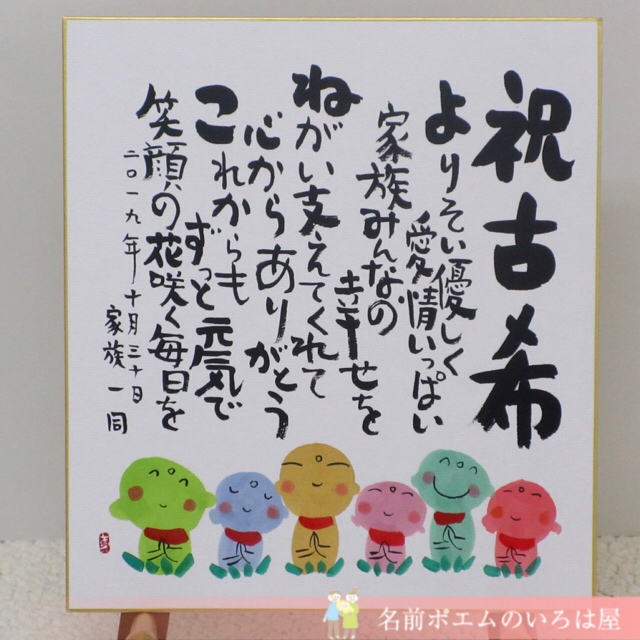 祝古希
よりそい優しく
愛情いっぱい
家族みんなの
幸せを
ねがい支えてくれて
心からありがとう
これからも
ずっと元気で
笑顔の花咲く毎日を
二〇一九年十月三十日
家族一同
名前ポエムのいろは屋